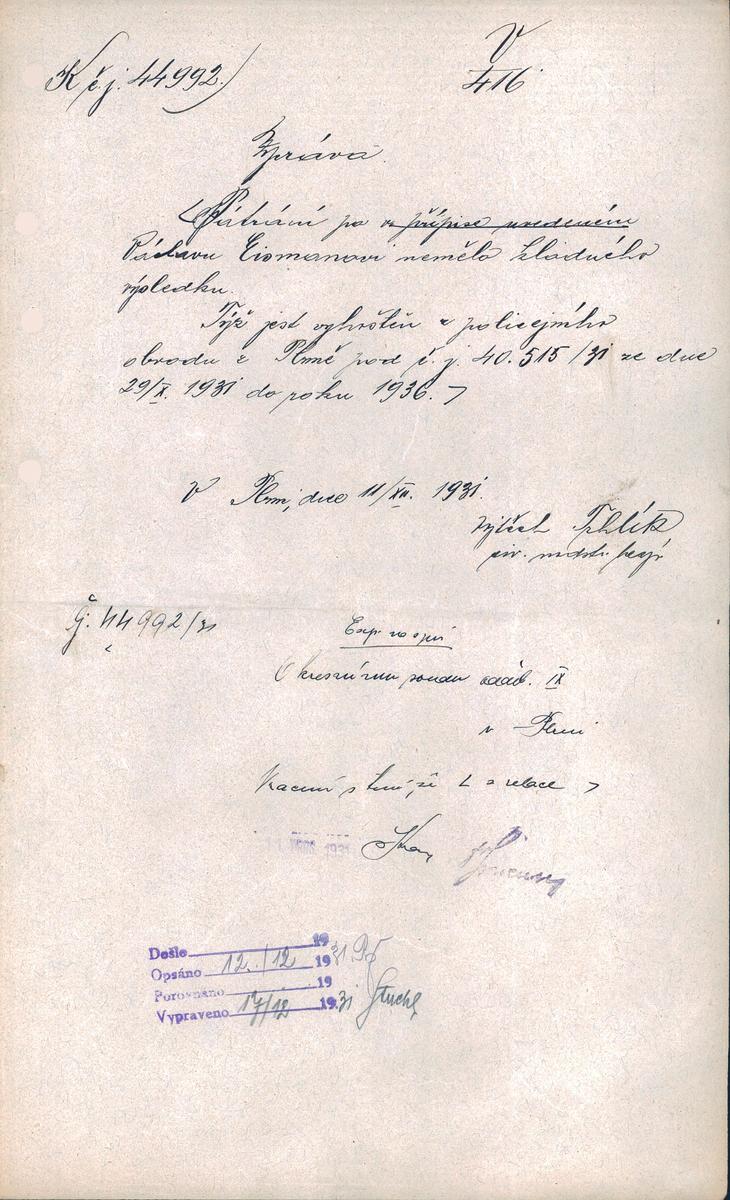 K č.j. 44992.)
V
416
Zpráva.
Pátrání po v přípise uvedeném
Václavu Eismanovi nemělo kladného
výsledku.
Týž jest vyhoštěn z policejního
obvodu v Plzni pod č.j. 40.515/31 ze dne
29/X. 1931 do roku 1936.
V Plzni, dne 11/XII. 1931.
Č.j. 44992/31
Okresnímu soudu odděl. IX
v Plzni
Vrácení s tím, že relace
1931
Došlo 19
Opsáno 12./12 1931
Porovnáno 19
Vypraveno 17/12 1931